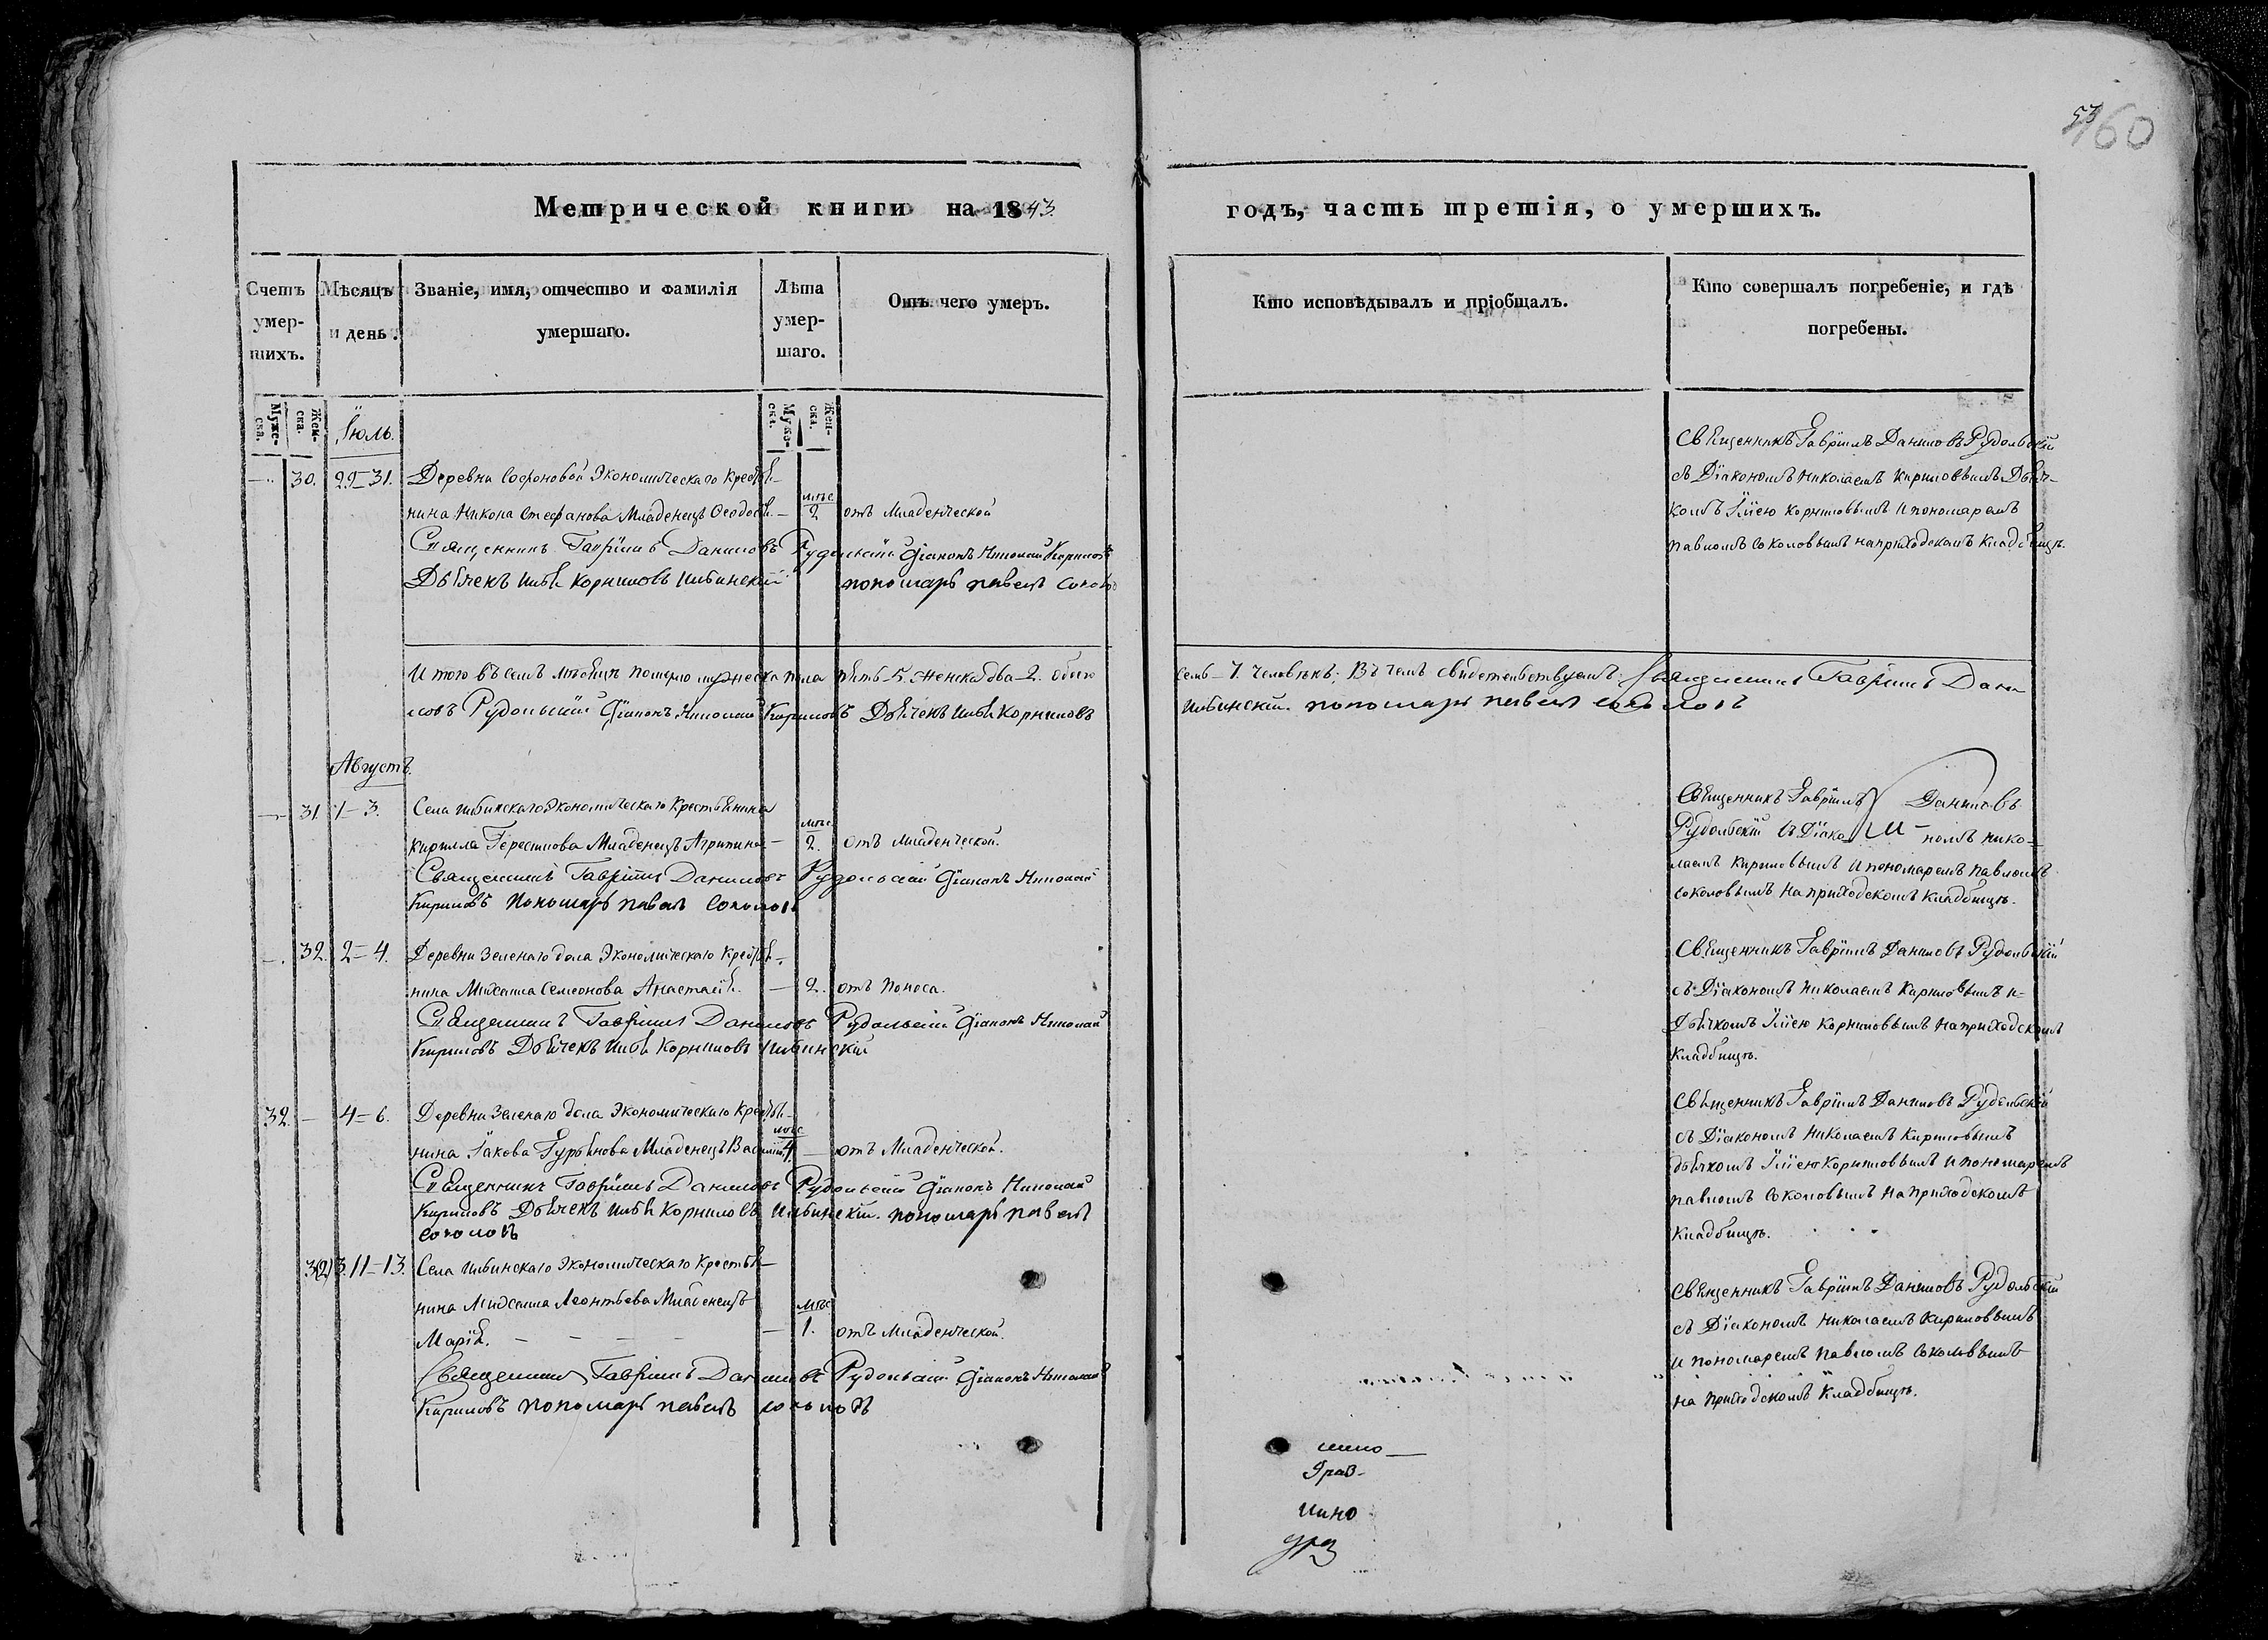 60
Метрической книги на 1843.
годъ, часть третія, о умершихъ.
Счетъ умер-шихъ.
Мѣсяцъ и день.
Званіе, имя, отчество и фамилія умершаго.
Лѣта умер-шаго.
Отъ чего умеръ.
Кто исповѣдывалъ и пріобщалъ.
Кто совершалъ погребеніе, и гдѣ погребены.
Муже-ска.
Жен-ска.
Іюль.
Муже-ска.
Жен-ска.
—. 30. 29–31. Деревни Софоновой Экономическаго Крестья-
нина Никона Стефанова Младенецъ Ѳеодосія — мѣс 2 отъ Младенческой
Священникъ Гавріилъ Даниловъ Рудольскій Діаконъ Николай Кириловъ
Дьячекъ Илья Корниловъ пономарь павелъ Соколовъ
Священникъ Гавріилъ Даниловъ Рудольскій
съ Діакономъ Николаемъ Кириловымъ Дьяч-
комъ Иліею Корниловымъ и пономаремъ
павломъ Соколовымъ на приходскомъ кладбищѣ.
И того въ семъ мѣсяцѣ померло мужеска пола пять–5. женска два–2. обоего
семь – 7. человѣкъ; Въ чемъ свидетельствуемъ: Священникъ Гавріилъ Дани
ловъ Рудольскій Діаконъ Николай Кириловъ Дьячекъ Илья Корниловъ
пономарь павелъ соколовъ
Августъ.
— 31 1–3. Села Экономическаго Крестьянина
Кирилла Герасимова Младенецъ Агрипина — мѣс. 2. отъ младенческой.
Священникъ Гавріилъ Даниловъ Рудольскій Діаконъ Николай
Кириловъ Пономарь павелъ Соколовъ
Священникъ Гавріилъ Даниловъ
Рудольскій съ Діако- номъ Нико-
лаемъ Кириловымъ и пономаремъ Павломъ
Соколовымъ на приходскомъ кладбищѣ.
—. 32. 2–4. Деревни Зеленаго дола Экономическаго Крестья-
нина Михаила Семеонова Анастасія. — 2. отъ поноса.
Священникъ Гавріилъ Даниловъ Рудольскій Діаконъ Николай
Кириловъ Дьячекъ Илья Корниловъ
Священникъ Гавріилъ Даниловъ Рудольскій
съ Діакономъ Николаемъ Кириловымъ и
Дьячкомъ Иліею Корниловымъ на приходскомъ
кладбищѣ.
32. — 4–6. Деревни Зеленаго дола Экономическаго Крестья-
нина Іакова Младенецъ Василій мѣс 4. — отъ Младенческой.
Священникъ Гавріилъ Даниловъ Рудольскій Діаконъ Николай
Кириловъ Дьячекъ Илья Корниловъ пономарь павелъ
соколовъ
Священникъ Гавріилъ Даниловъ Рудольскій
съ Діакономъ Николаемъ Кириловымъ
дьячкомъ Иліею Корниловымъ и пономаремъ
павломъ Соколовымъ на приходскомъ
кладбищѣ.
11–13. Села Экономическаго Крестья-
нина Михаила Леонтьева Младенецъ
Марія. — — — — — мѣс 1. отъ Младенческой.
Священникъ Гавріилъ Даниловъ Рудольскій Діаконъ Николай
Кириловъ пономарь павелъ соколовъ
Священникъ Гавріилъ Даниловъ Рудольскій
съ Діакономъ Николаемъ Кириловымъ
и пономаремъ павломъ Соколовымъ
на приходскомъ кладбищѣ.